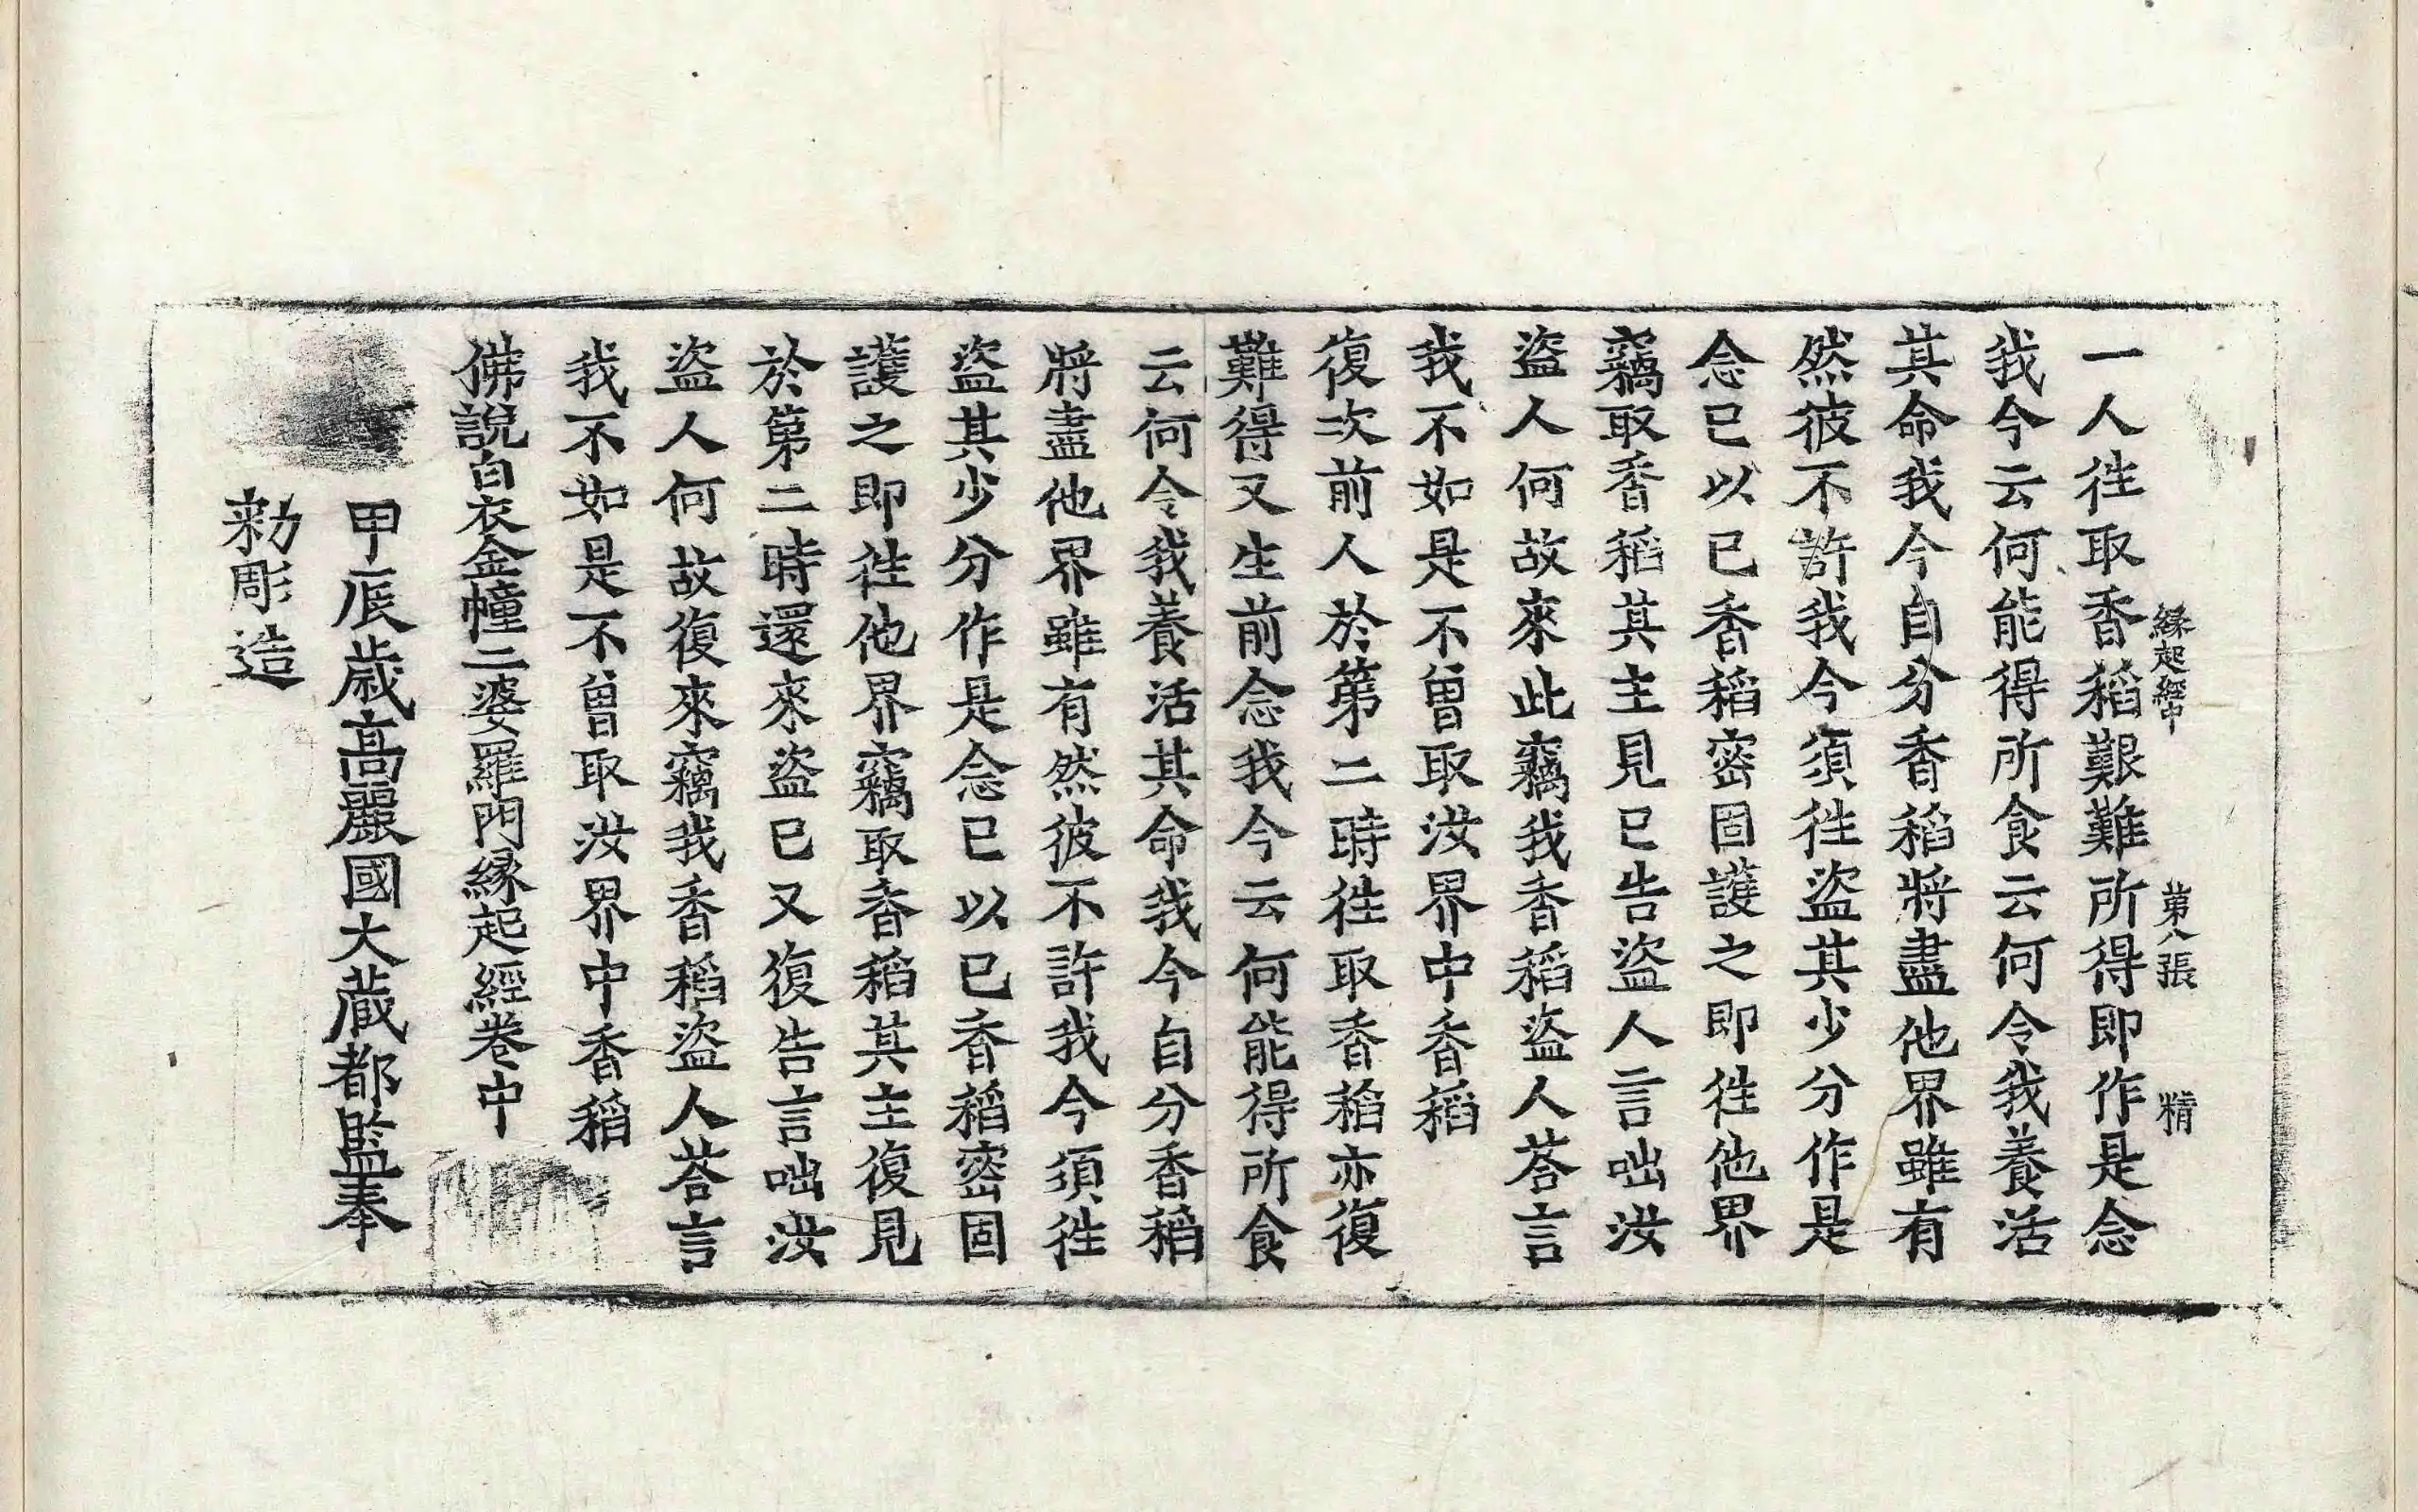 縁起經中 第八張 精
一人往取香稻艱難所得即作是念
我今云何能得所食云何令我養活
其命我今自分香稻將盡他界雖有
然彼不許我今須往盜其少分作是
念已以已香稻密固護之即往他界
竊取香稻其主見已告盜人言咄汝
盜人何故來此竊我香稻盜人荅言
我不如是不曾取汝界中香稻
復次前人於第二時往取香稻亦復
難得又生前念我今云何能得所食
云何令我養活其命我今自分香稻
將盡他界雖有然彼不許我今須往
盜其少分作是念已以已香稻密固
護之即往他界竊取香稻其主復見
於第二時還來盜已又復告言咄汝
盜人何故復來竊我香稻盜人荅言
我不如是不曾取汝界中香稻
佛說白衣金幢二婆羅門縁起經卷中
甲辰歲高麗國大藏都監奉
勑彫造